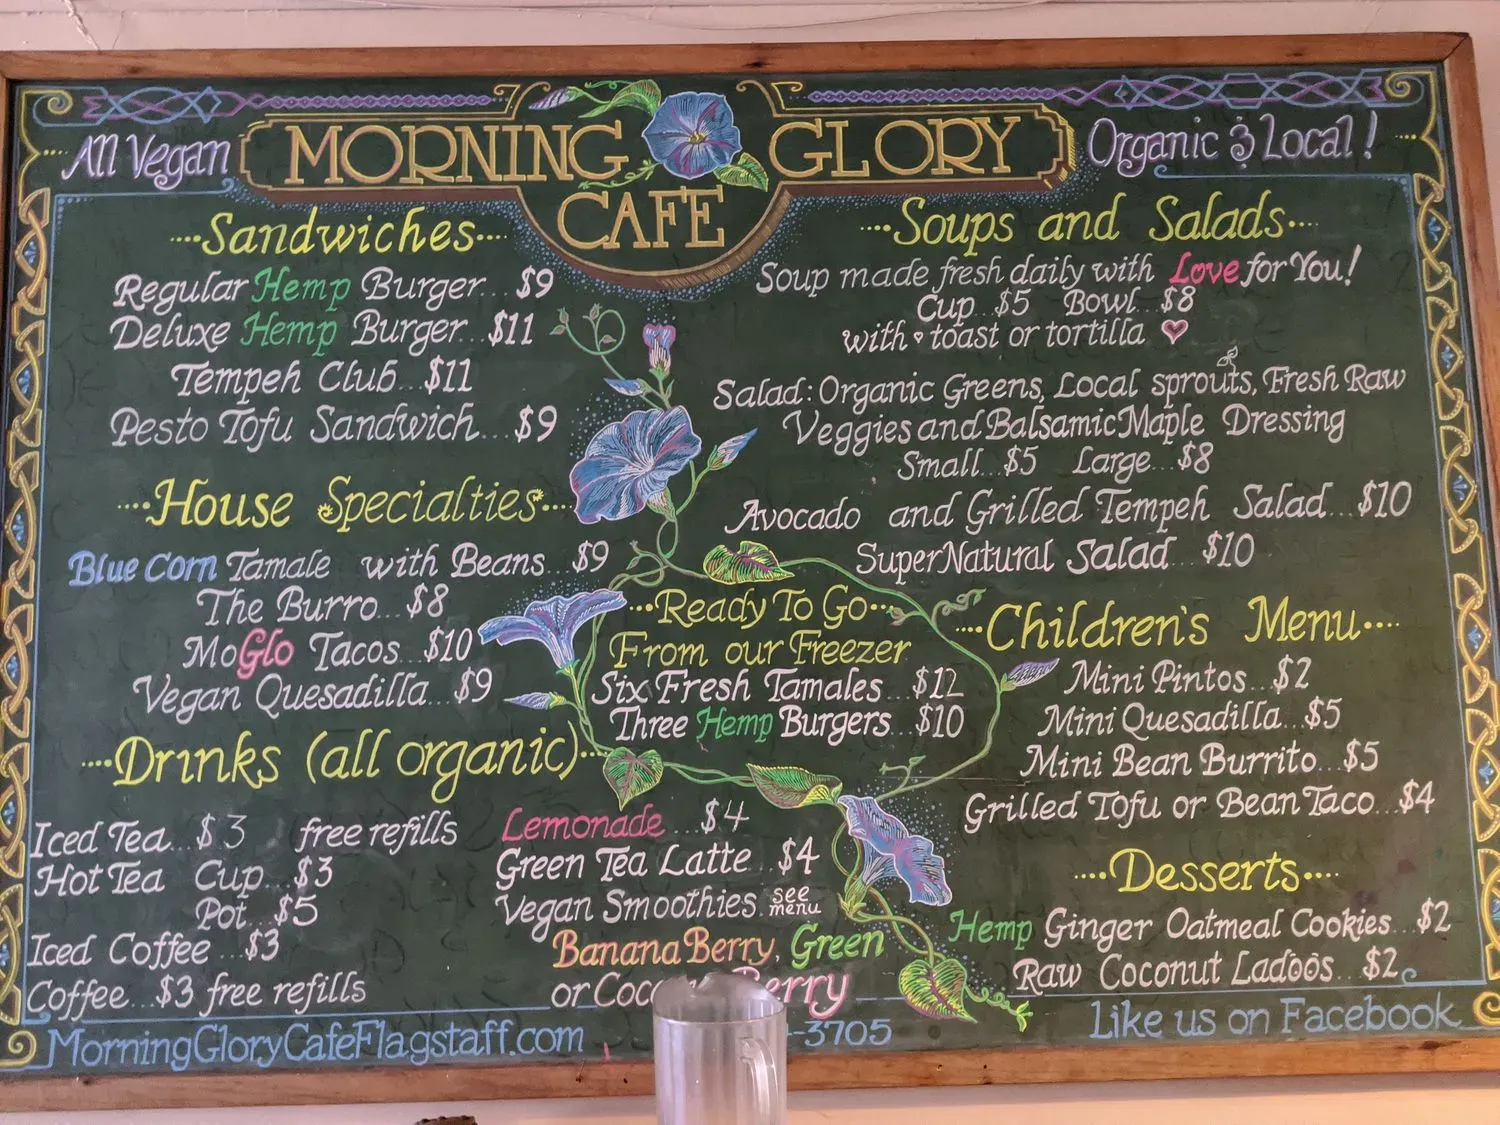 All Vegan
MORNING GLORY
CAFE
Organic & Local!
Sandwiches
Regular Hemp Burger...$9
Deluxe Hemp Burger...$11
Tempeh Club...$11
Pesto Tofu Sandwich...$9
House Specialties
Blue Corn Tamale with Beans...$9
The Burro...$8
MoGlo Tacos...$10
Vegan Quesadilla...$9
Drinks (all organic)
Iced Tea...$3 free refills
Hot Tea Cup...$3
Pot...$5
Iced Coffee...$3
Coffee...$3 free refills
Lemonade...$4
Green Tea Latte...$4
Vegan Smoothies...see menu
Banana Berry, Green
or Berry
Ready To Go
From our Freezer
Six Fresh Tamales...$12
Three Hemp Burgers...$10
Soups and Salads
Soup made fresh daily with Love for You!
Cup...$5 Bowl...$8
with toast or tortilla
Salad: Organic Greens, Local sprouts, Fresh Raw
Veggies and Balsamic Maple Dressing
Small...$5 Large...$8
Avocado and Grilled Tempeh Salad...$10
SuperNatural Salad...$10
Children's Menu
Mini Pintos...$2
Mini Quesadilla...$5
Mini Bean Burrito...$5
Grilled Tofu or Bean Taco...$4
Desserts
Hemp Ginger Oatmeal Cookies...$2
Raw Coconut Ladoos...$2
MorningGloryCafeFlagstaff.com
-3705
Like us on Facebook